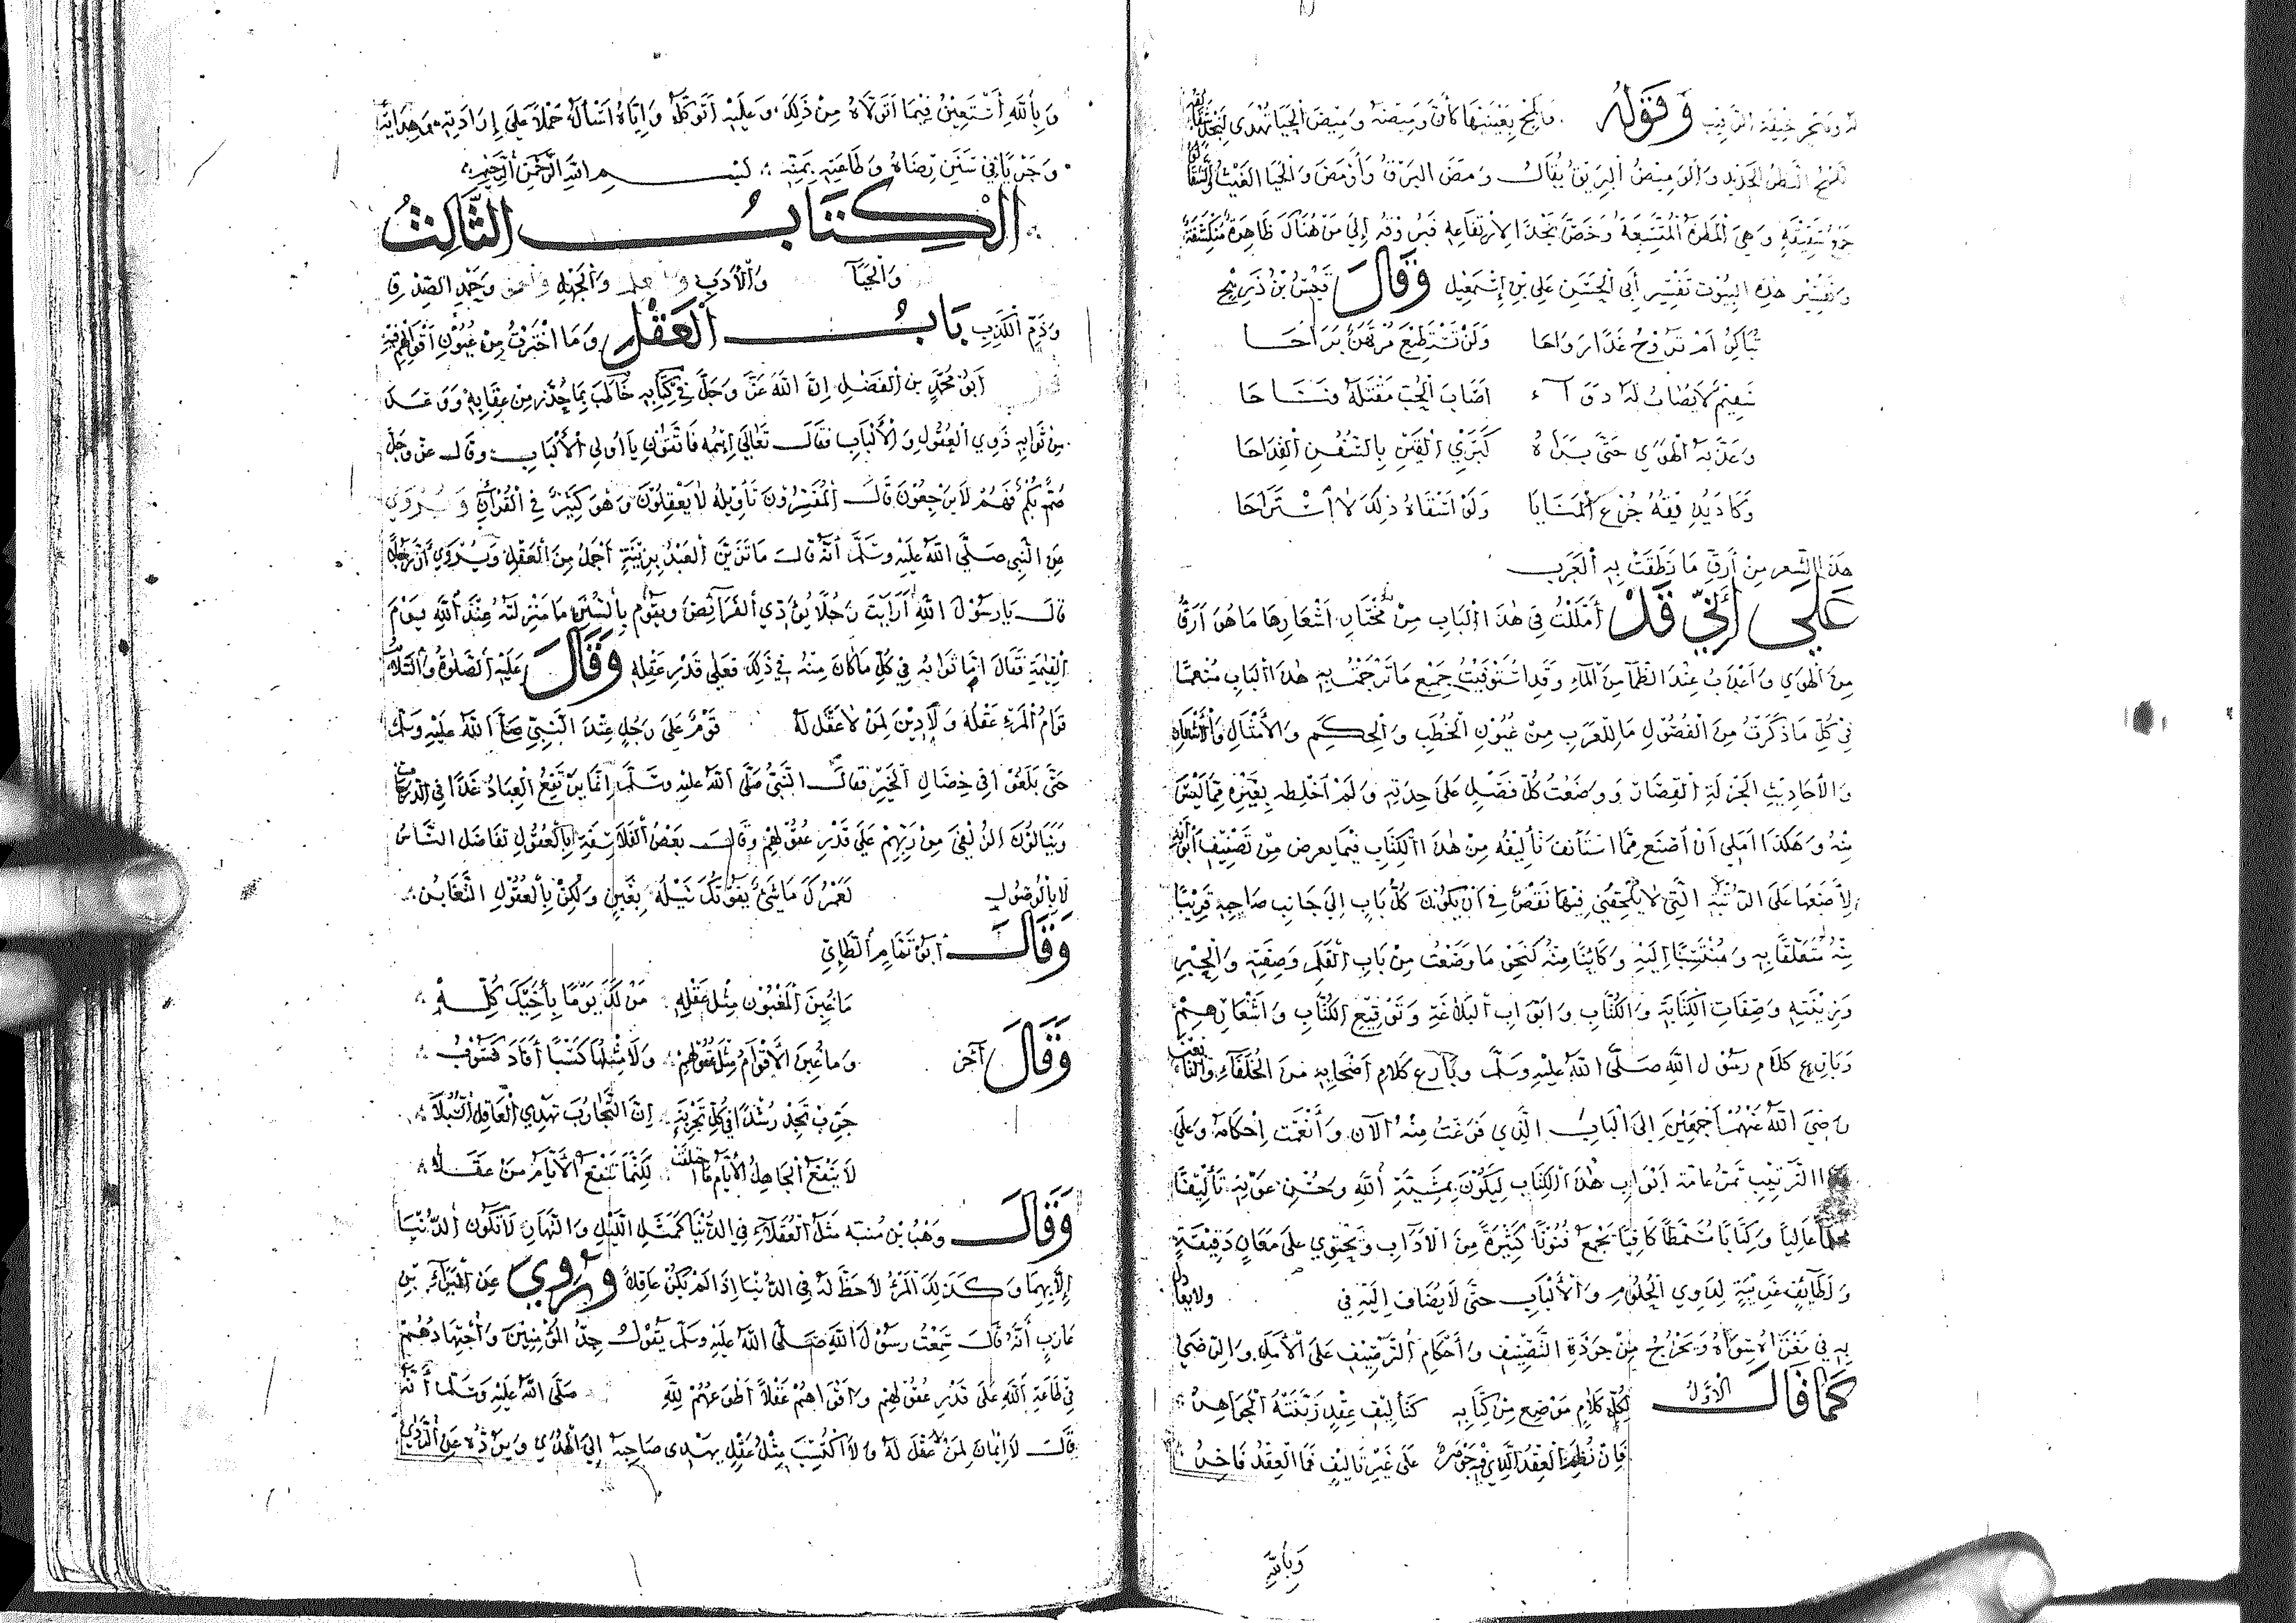 وقوله وألمح بعينيها كأن وميضه وميض الحيا تهدى لنجد
اللمح النظر الحديد والوميض البريق يقال ومض البرق وأومض والحيا الغيث
وهي المطرة المتسعة وخص نجدا لارتفاعه فبروقه إلى من هناك ظاهرة منكشفة
وتفسير هذه البيوت تفسير أبي الحسن علي بن إسمعيل وقال قيس بن ذريح
تباكر أم تروح غدا رواحا ولن تستطيع مرتهن براحا
سقيم لا يصاب له دوآء أصاب الحب مقتله فناحا
وعذبه الهوى حتى براه كبري القين بالسفن القداحا
وكاد يذيقه جرع المنايا ولو أسقاه ذلك لاستراحا
هذا الشعر من أرق ما نطقت به العرب
على أني قد أمللت في هذا الباب من مختار أشعارها ما هو أرق
من الهوى وأعذب عند الظمآ من المآء وقد استوفيت جميع ما ترجمت به هذا الباب
في كل ما ذكرت من الفصول ما للعرب من عيون الخطب والحكم والأمثال والأشعار
والأحاديث الجزلة القصار ووضعت كل فصل على حدته ولم أخلطه بغيره مما ليس
منه وهكذا أملي أن أصنع مما استأنف تأليفه من هذا الكتاب فيما يعرض من تصنيف
لأضعها على الرتبة التي لا يلحقني فيها نقص في أن يكون كل باب إلى جانب صاحبه قريبا
منه متعلقا به ومنتسبا إليه وكائنا منه كنحو ما وضعت من باب القلم وصفته والحبر
وصفات الكتابة والكتاب وأبواب البلاغة وتوقيع الكتاب وأشعارهم
وبارع كلام رسول الله صلى الله عليه وسلم وبارع كلام أصحابه من الخلفاء
رضي الله عنهم أجمعين إلى الباب الذي فرغت منه الآن وأنعمت إحكامه وعلى
الترتيب تمر عامة أبواب هذا الكتاب ليكون بمشيئة الله وحسن عونه تأليفا
عاليا وكتابا كافيا يجمع فنونا كثيرة من الآداب ويحتوي على معان دقيقة
ولطائف غريبة لذوي الحلوم والألباب حتى لا يضاف إليه في ولا يقال
به في ويخرج من جودة التصنيف وأحكام الترصيف على الأمل والرضى
كما قال الأول لكل كلام موضع من كتابه كتأليف عقد زينته الجواهر
فإن نظم العقد الذي فيه جوهر على غير تأليف فما العقد فاخر
وبالله
وبالله أستعين فيما أتولاه من ذلك وعليه أتوكل وإياه أسأل حملا على إرادته وهدايته
وجريا في سنن رضاه وطاعته بمنه بسم الله الرحمن الرحيم
الكتاب الثالث
والحيآ والأدب والعلم والجهل وحمد الصدق
وذم الكذب باب العقل وما اخترت من عيون أقوالهم فيه
أبو محمد بن الفضل إن الله عز وجل في كتابه خاطب بما حذر من عقابه ووعد
من ثوابه ذوي العقول والألباب فقال تعالى اسمه فاتقون يا أولي الألباب وقال عز وجل
صم بكم فهم لا يرجعون قال المفسرون تأويله لا يعقلون وهو كثير في القرآن ويروى
عن النبي صلى الله عليه وسلم أنه قال ما تزين العبد بزينة أجمل من العقل ويروى أن رجلا
قال يا رسول الله أرأيت رجلا يؤدي الفرآئض ويقوم بالسنن ما منزلته عند الله يوم
القيمة فقال إنما ثوابه في كل ما كان منه في ذلك فعلى قدر عقله وقال عليه الصلوة والسلام
قوام المرء عقله ولا دين لمن لا عقل له قوم على رجل عند النبي صلى الله عليه وسلم
حتى بلغوا في خصال الخير فقال النبي صلى الله عليه وسلم إنما يرتفع العباد غدا في الدرجات
وينالون الزلفى من ربهم على قدر عقولهم وقال بعض الفلاسفة بالعقول تفاضل الناس
لا بالأصول لعمرك ما شيء يفوتك نيله بغبن ولكن بالعقول التغابن
وقال أبو تمام الطائي
ما غبن المغبون مثل عقله من لك يوما بأخيك كله
وقال آخر وما غبن الأقوام مثل عقولهم ولا مثلها كسبا أفاد كسوب
جرب تجد رشدا في كل تجربة إن التجارب تهدي العاقل السبلا
لا ينفع الجاهل الأيام ما خلقت لكنما تنفع الأيام من عقلا
وقال وهب بن منبه مثل العقلاء في الدنيا كمثل الليل والنهار لا تكون الدنيا
إلا بهما وكذلك المرء لا حظ له في الدنيا إذا لم يكن عاقلا ويروى عن البراء بن
عازب أنه قال سمعت رسول الله صلى الله عليه وسلم يقول جد المؤمنين واجتهادهم
في طاعة الله على قدر عقولهم وأقواهم عقلا أطوعهم لله صلى الله عليه وسلم أنه
قال لا إيمان لمن لا عقل له ولا اكتسب مثل عقل يهدى صاحبه إلى الهدى ويرده عن الردى